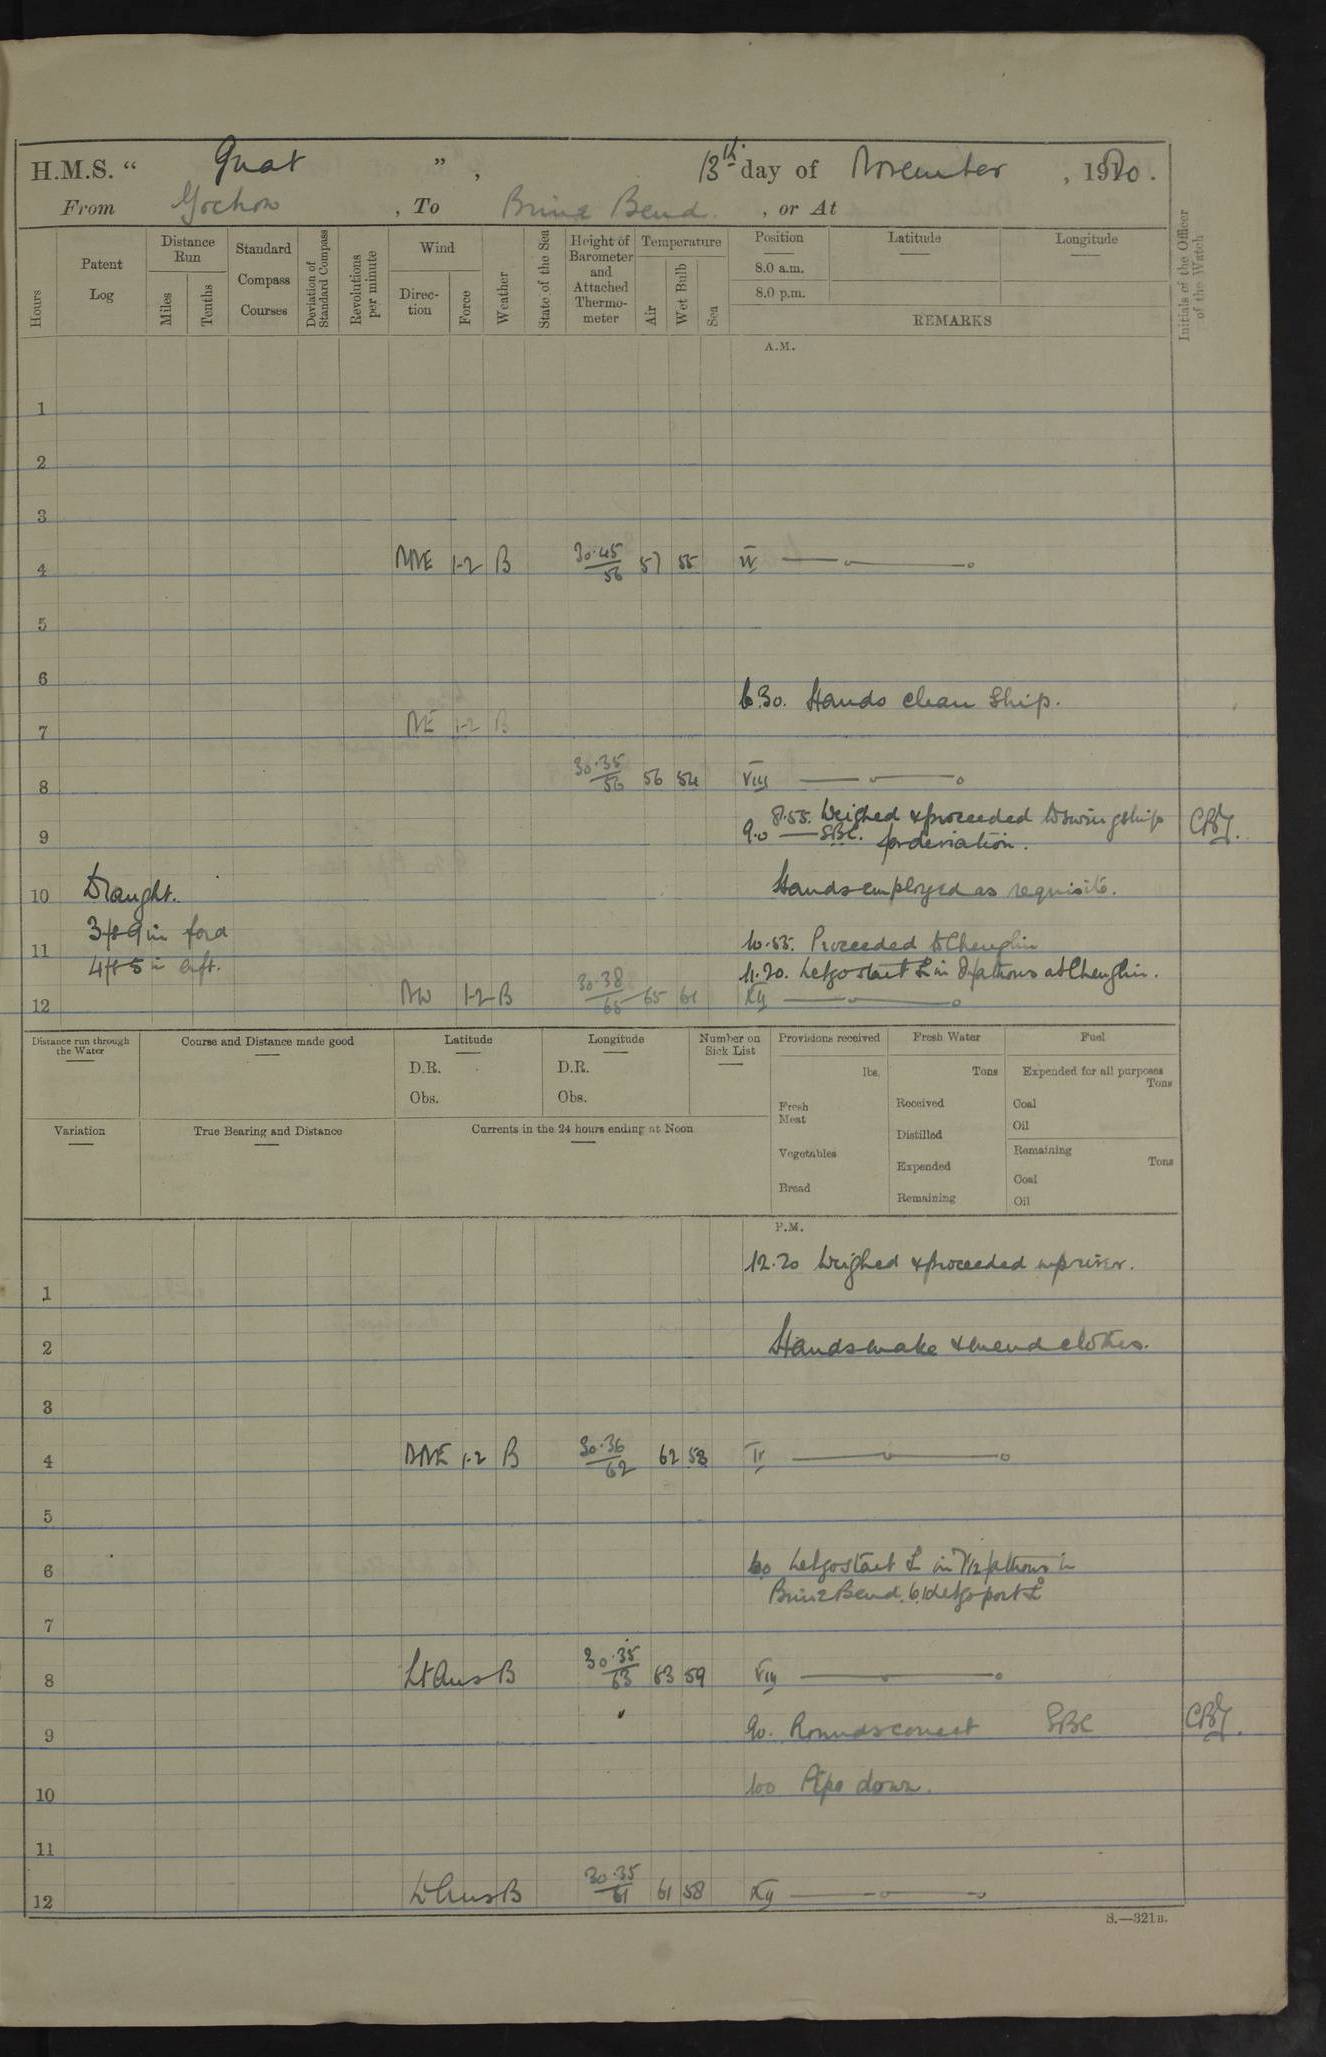 H.M.S. “ Gnat ” , 13th day of November , 1920 .
From Yochow , To Brine Bend. , or At
Hours
Patent Log
Distance Run
Miles
Tenths
Standard Compass Courses
Deviation of Standard Compass
Revolutions per minute
Wind
Direction
Force
Weather
State of the Sea
Height of Barometer and Attached Thermometer
Temperature
Air
Wet Bulb
Sea
Position
8.0 a.m.
8.0 p.m.
Latitude
Longitude
REMARKS
Initials of the Officer of the Watch
A.M.
1
2
3
4 NNE 1-2 B 30.45/56 57 55 IV
5
6
6.30. Hands clean Ship.
7 NE 1-2 B
8 30.35/56 56 54 VIII
8.55. Weighed & proceeded to swing ship
9 9.0 SBC. for deviation.
10 Draught. Hands employed as requisite.
3ft 9in ford
11 10.55. Proceeded to Chenglin
4ft 5in aft. 11.20. Let go starb in fathoms at Chenglin.
12 NW 1-2 B 30.38/65 65 61 XII
Distance run through the Water
Course and Distance made good
Latitude
D.R.
Obs.
Longitude
D.R.
Obs.
Number on Sick List
Provisions received
lbs.
Fresh Meat
Vegetables
Bread
Fresh Water
Tons
Received
Distilled
Expended
Remaining
Fuel
Expended for all purposes
Tons
Coal
Oil
Remaining
Tons
Coal
Oil
Variation
True Bearing and Distance
Currents in the 24 hours ending at Noon
P.M.
12.20 Weighed & proceeded up river.
1
2 Hands make & mend clothes.
3
4 NNE 1-2 B 30.36/62 62 58 IV
5
6 6.0 Let go starb in 7½ fathoms in
Brine Bend. Let go port
7
8 Lt Airs B 30.35/63 63 59 VIII
9 9.0. Rounds correct SBC
10 10.0 Pipe down.
11
12 Lt Airs B 30.35/61 61 58 XII
S.—321B.